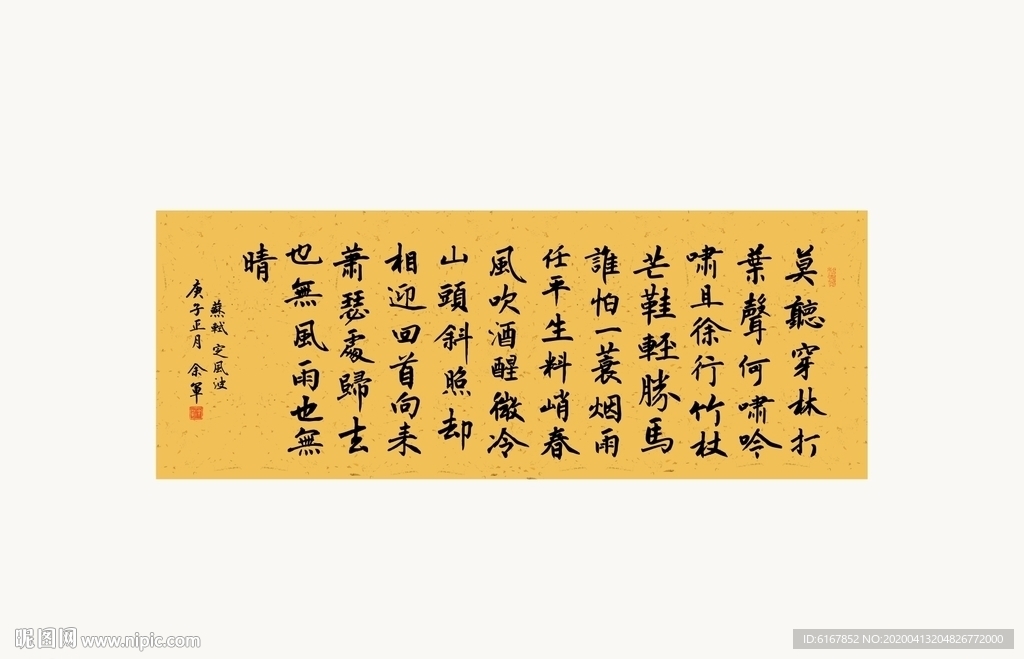 莫聽穿林打
葉聲何嘯吟
嘯且徐行竹杖
芒鞋輕勝馬
誰怕一蓑烟雨
任平生料峭春
風吹酒醒微冷
山頭斜照却
相迎回首向来
蕭瑟處歸去
也無風雨也無
晴
蘇軾 定風波
庚子正月 余軍
昵图网 www.nipic.com
ID:6167852 NO:20200413204826772000